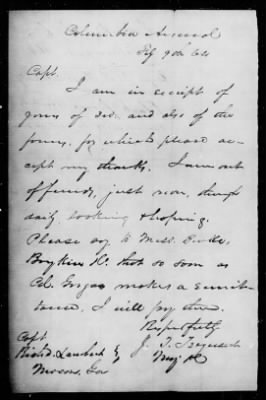 Columbia Arsenal
July 9th 62
Capt.
I am in receipt of
yours of 3rd. and also of the
forms, for which please ac-
cept my thanks. I am out
of funds, just now, though
daily looking & hoping.
Please say to Mess.
that so soon as
Col. Gorgas makes a remit-
tance, I will pay them.
Respectfully
J. T. Trezevant
Capt
Richd. Lambert
Macon, Ga